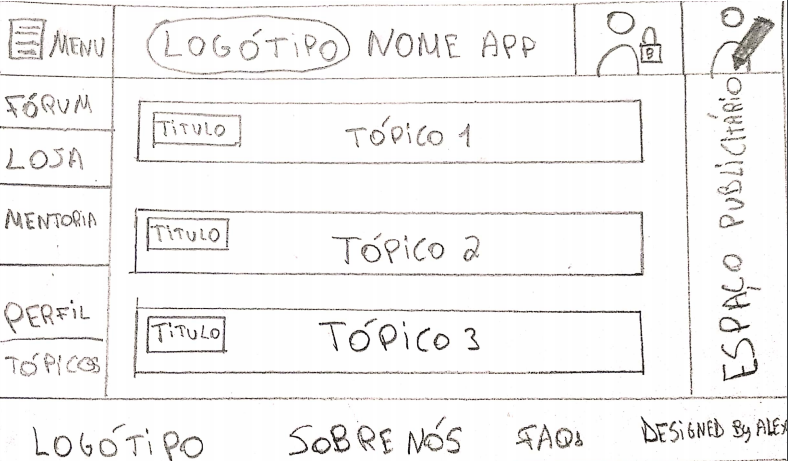 MENU
LOGÓTIPO NOME APP
FÓRUM
LOJA
MENTORIA
PERFIL
TÓPICOS
TITULO TÓPICO 1
TITULO TÓPICO 2
TITULO TÓPICO 3
ESPAÇO PUBLICITÁRIO
LOGÓTIPO SOBRE NÓS FAQs DESIGNED By ALEX